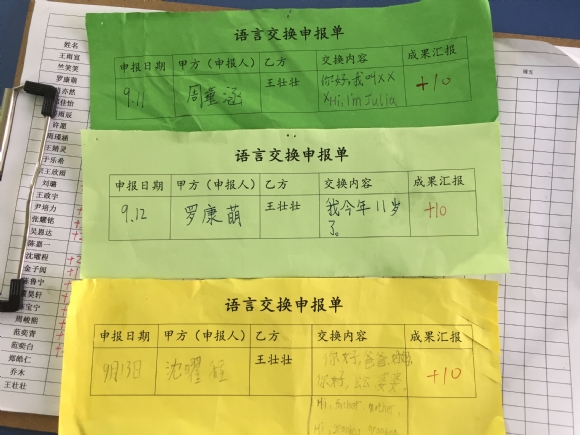 姓名
王雨宣
竺笑笑
罗康萌
许源
王婧灵
于乐希
王欣雨
刘璐
王政宇
尹培力
张耀铭
吴思达
陈嘉一
沈曜程
金子阅
周峻熙
范奕青
范奕白
郑皓仁
乔木
王壮壮
语言交换申报单
申报日期 甲方（申报人） 乙方 交换内容 成果汇报
9.11 周瑾涵 王壮壮 你好,我叫XX +10
Hi, I'm Julia
语言交换申报单
申报日期 甲方（申报人） 乙方 交换内容 成果汇报
9.12 罗康萌 王壮壮 我今年11岁 +10
了。
语言交换申报单
申报日期 甲方（申报人） 乙方 交换内容 成果汇报
9月13日 沈曜程 王壮壮 你好,爸爸,妈妈, +10
你好,公公,婆婆
Hi, father mother,
Hi, grandpa grandma